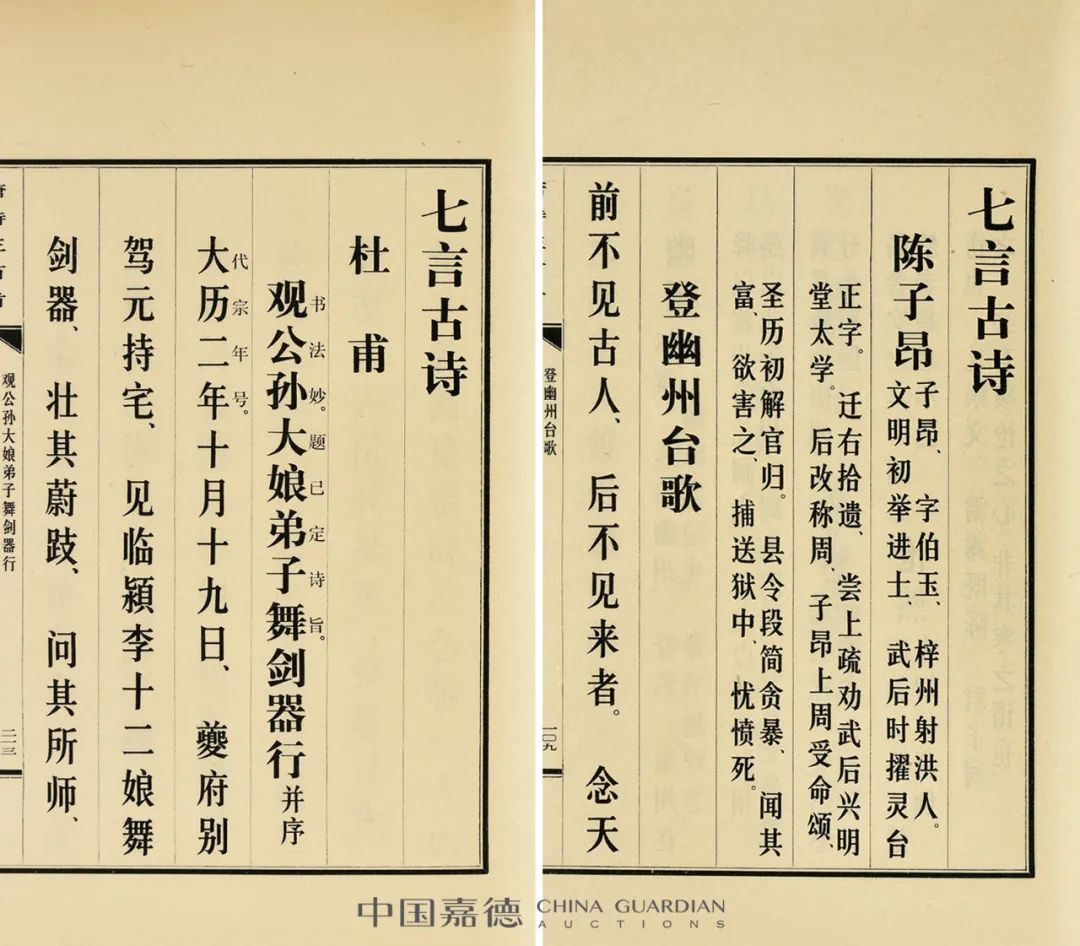 七言古诗
陈子昂
子昂、字伯玉、梓州射洪人。
文明初举进士、武后时擢灵台
正字。迁右拾遗、尝上疏劝武后兴明
堂太学。后改称周、子昂上周受命颂、
圣历初解官归。县令段简贪暴、闻其
富、欲害之、捕送狱中、忧愤死。
登幽州台歌
前不见古人、后不见来者。念天
登幽州台歌
二〇九
七言古诗
杜甫
书法妙。题已定诗旨。
观公孙大娘弟子舞剑器行并序
代宗年号。
大历二年十月十九日、夔府别
驾元持宅、见临颍李十二娘舞
剑器、壮其蔚跂、问其所师、
观公孙大娘弟子舞剑器行
二一三
中国嘉德 CHINA GUARDIAN
AUCTIONS